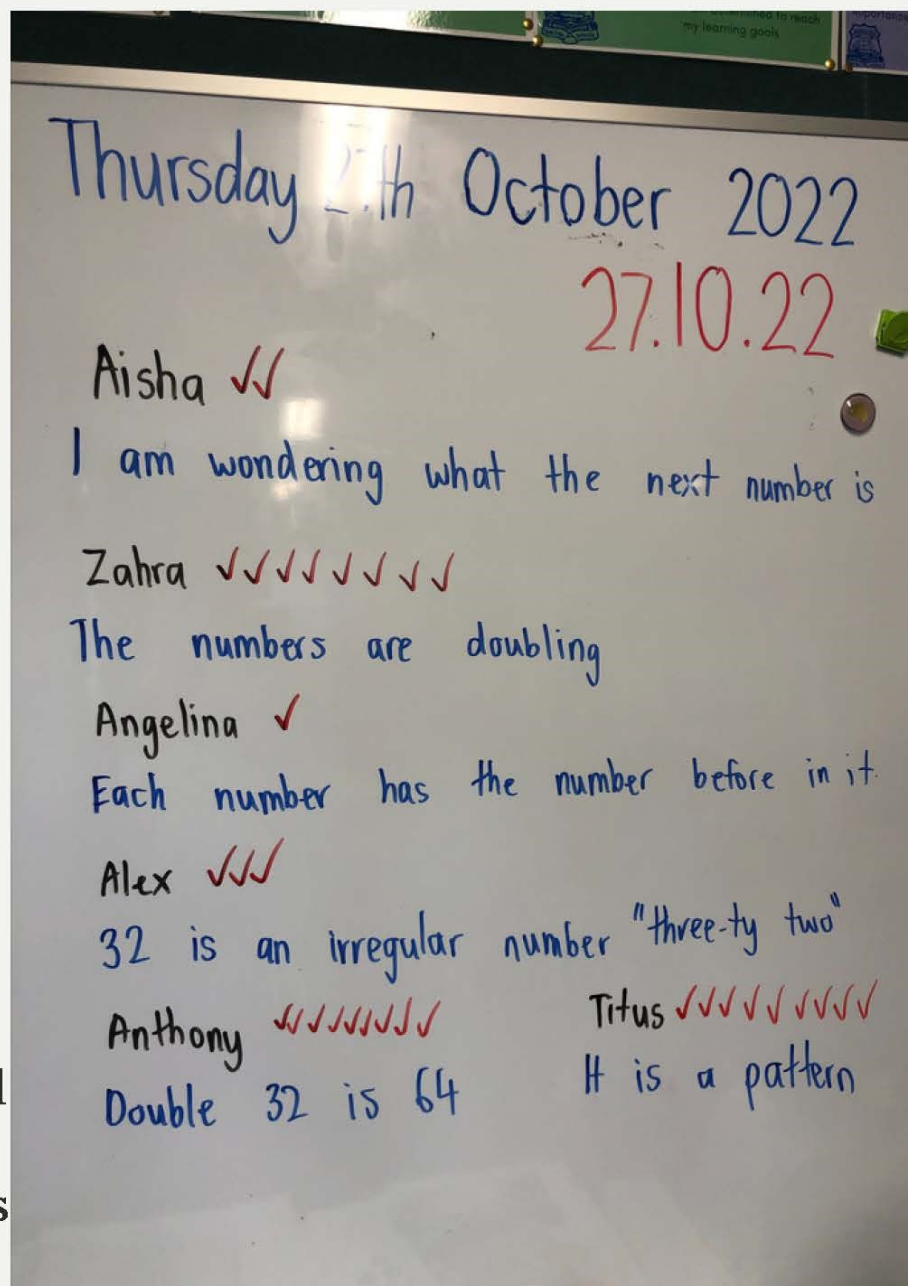 to reach
my learning goals
Thursday 27th October 2022
27.10.22
Aisha ✓✓
I am wondering what the next number is
Zahra ✓✓✓✓✓✓✓✓
The numbers are doubling
Angelina ✓
Each number has the number before in it.
Alex ✓✓✓
32 is an irregular number "three-ty two"
Anthony ✓✓✓✓✓✓✓✓
Double 32 is 64
Titus ✓✓✓✓✓✓✓✓✓
It is a pattern